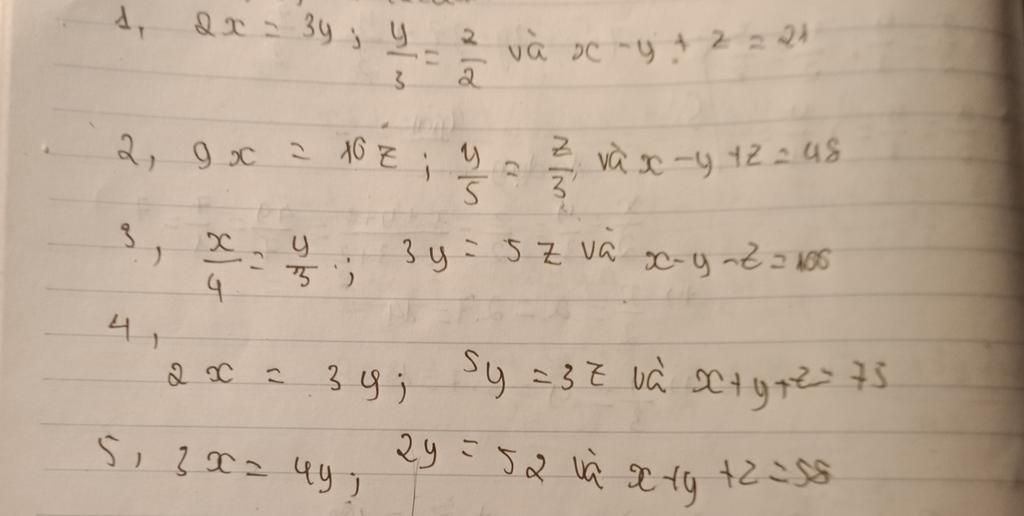 1, 2x = 3y ; y/3 = z/2 và x - y + z = 21
2, 9x = 10z ; y/5 = z/3 và x - y + z = 48
3, x/4 = y/3 ; 3y = 5z và x - y - z =
4,
2x = 3y ; 5y = 3z và x + y + z = 75
5, 3x = 4y ; 2y = 5z và x + y + z = 58